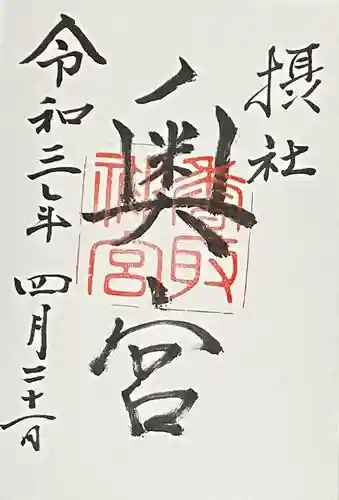 摂社
奥宮
香取
神宮
令和三年四月二十一日